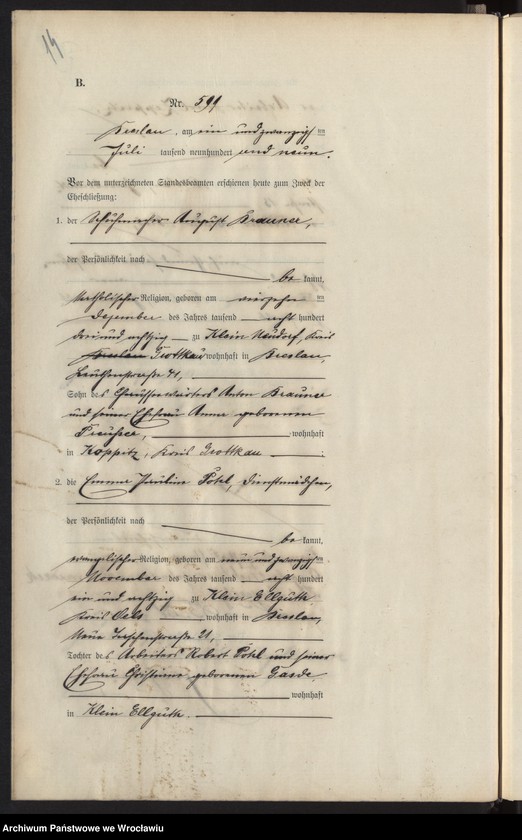 14
B.
Nr. 599
Breslau, am ein und zwanzig ten
Juli tausend neunhundert und neun.
Vor dem unterzeichneten Standesbeamten erschienen heute zum Zweck der
Eheschließung:
1. der Schuhmacher August Kraunce,
der Persönlichkeit nach
be kannt,
katholischer Religion, geboren am vierzehn ten
Dezember des Jahres tausend acht hundert
drei und achtzig zu Klein Neudorf, Kreis
Breslau Grottkau wohnhaft in Breslau,
Leuthenstraße 41,
Sohn des Chausseewärters Anton Kraunce
und seiner Ehefrau Anna geborenen
wohnhaft
in Koppitz, Kreis Grottkau ;
2. die Emma Pauline Pohl, Dienstmädchen,
der Persönlichkeit nach
be kannt,
evangelischer Religion, geboren am neun und zwanzigsten
November des Jahres tausend acht hundert
ein und achtzig zu Klein Ellguth
Kreis Oels , wohnhaft in Breslau,
Neue 21,
Tochter des Arbeiters Robert Pohl und seiner
Ehefrau Christiane geborenen Garde
wohnhaft
in Klein Ellguth.
Archiwum Państwowe we Wrocławiu